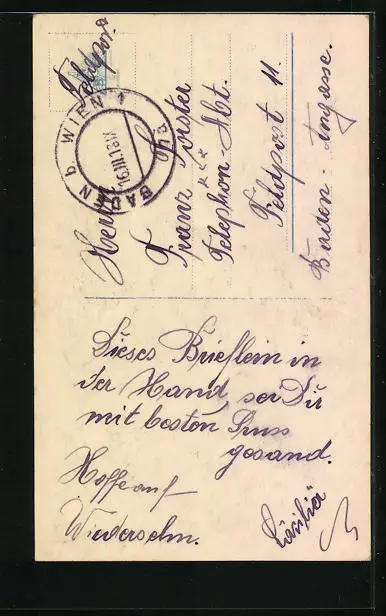 Feldpost
BADEN b. WIEN 1
16.III.18.IX
Herrn
Franz Forster
Telephon-Abt.
Feldpost 11.
Baden -
Dieses Brieflein in
der Hand, sei Dir
mit besten Gruss
gesand.
Hoffe auf
Wiedersehn.
Cäcilia